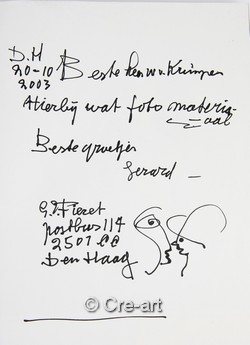 D.H
20-10
2003
Beste
Hierbij wat foto materi-
aal
Beste groetjes
Gerard
G.P. Fieret
postbus 114
2501
Den Haag
© Cre-art